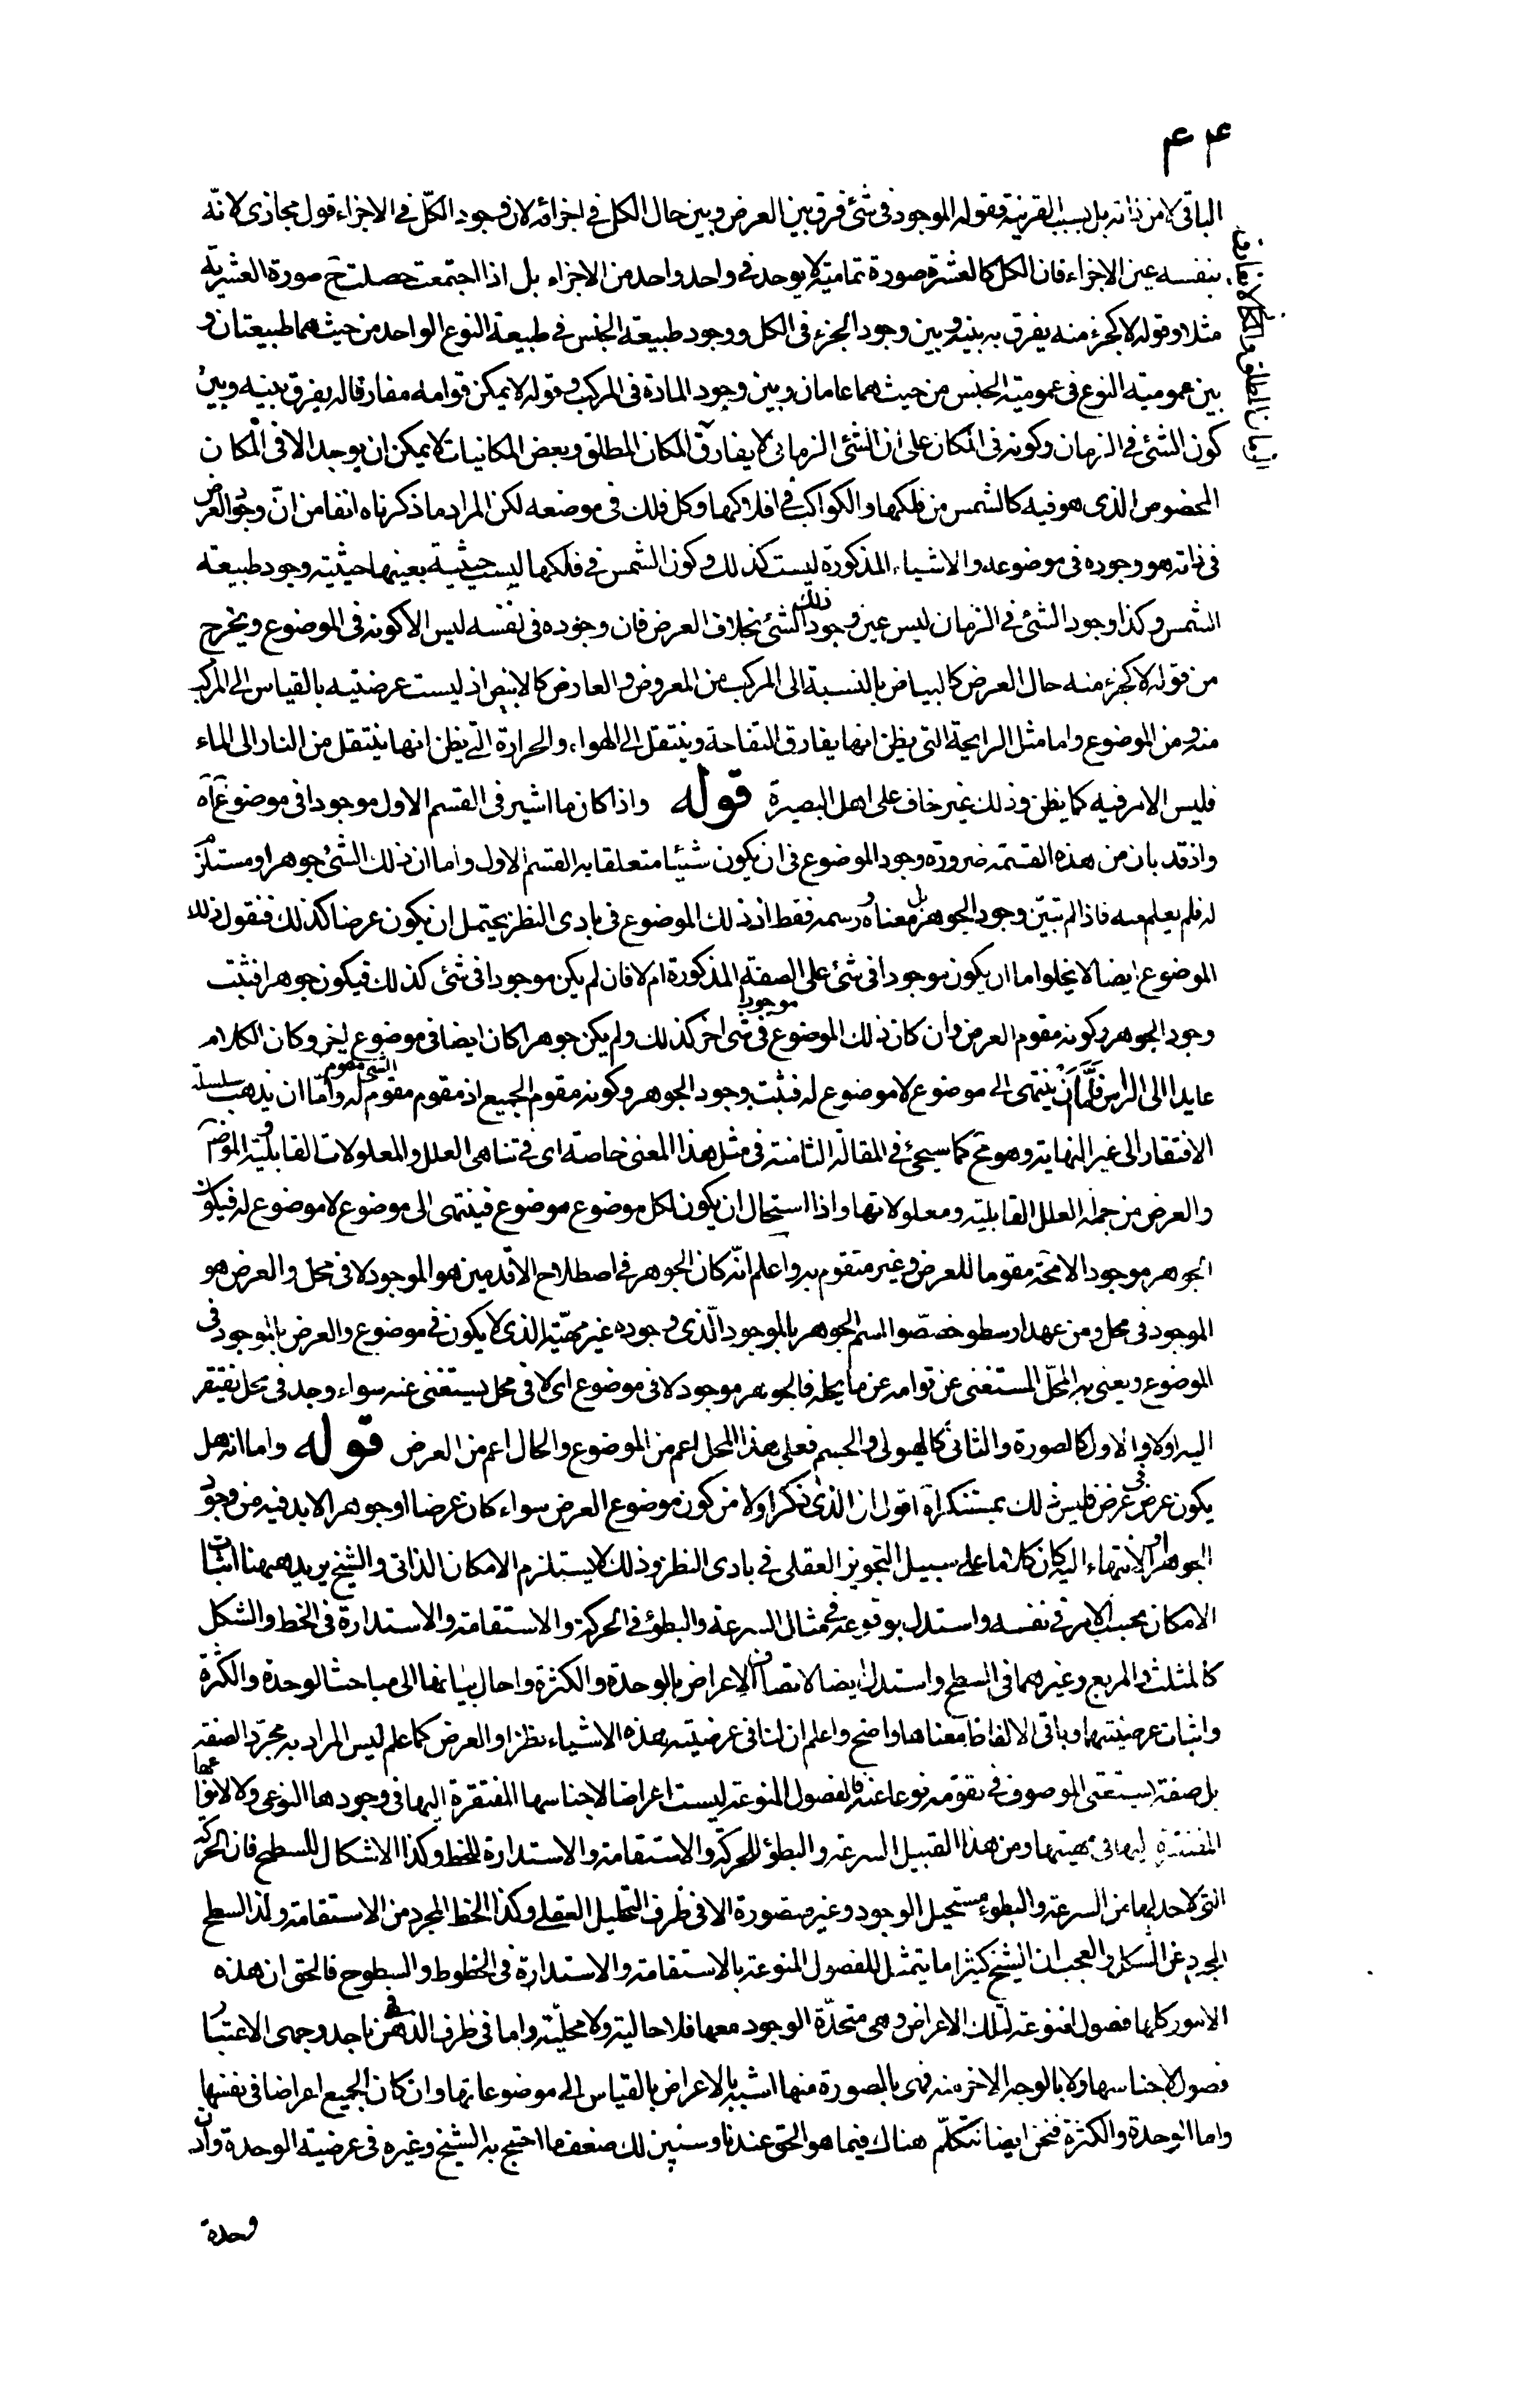 ۴۴
الباقی لا من ذاته بل بسبب القرینة فقوله الموجود فی شئ فرق بین العرض وبین حال الکل فی اجزائه لان وجود الکلّ فی الاجزاء قول مجازی لانّه
بنفسه عین الاجزاء فان الکل کالعشرة صورة تمامیة لا یوجد فی واحد واحد من الاجزاء بل اذا اجتمعت حصلت ح صورة العشریة
مثلا وقوله لا کجزء منه یفرق به بینه وبین وجود الجزء فی الکل ووجود طبیعة الجنس فی طبیعة النوع الواحد من حیث هما طبیعتان و
بین عمومیة النوع فی عمومیة الجنس من حیث هما عامان وبین وجود المادة فی المرکب وقوله لا یمکن قوامه مفارقا له یفرق بینه وبین
کون الشئ فی الزمان وکونه فی المکان علی ان الشئ الزمانی لا یفارق المکان المطلق وبعض المکانیات لا یمکن ان یوجد الا فی المکان
الزمان المطلق والمکانی لا یفارق
المخصوص الذی هو فیه کالشمس من فلکها والکواکب فی افلاکها وکل فلک فی موضعه لکن المراد ما ذکرناه انفا من انّ وجود العرض
فی ذاته هو وجوده فی موضوعه والاشیاء المذکورة لیست کذلک وکون الشمس فی فلکها لیست حیثیة بعینها حیثیة وجود طبیعة
الشمس وکذا وجود الشئ فی الزمان لیس عین وجود ذلک الشئ بخلاف العرض فان وجوده فی نفسه لیس الا کونه فی الموضوع ویخرج
من قوله لا کجزء منه حال العرض کالبیاض بالنسبة الی المرکب من المعروض والعارض کالابیض اذ لیست عرضیته بالقیاس الی المرکب
منه ومن الموضوع واما مثل الرایحة التی یظن انها یفارق التفاحة وینتقل الی الهواء والحرارة التی یظن انها ینتقل من النار الی الماء
فلیس الامر فیه کما یظن وذلک غیر خاف علی اهل البصیرة قوله واذا کان ما اشیر فی القسم الاول موجودا فی موضوع آه
واذ قد بان من هذه القسمة ضرورة وجود الموضوع فی ان یکون شیئا متعلقا به القسم الاول واما ان ذلک الشئ جوهر او مستلزم
له فلم یعلم منه فاذا لم تبیّن وجود الجوهر بل معناه ورسمه فقط اذ ذلک الموضوع فی بادی النظر یحتمل ان یکون عرضا کذلک فنقول ذلک
الموضوع ایضا لا یخلو اما ان یکون موجودا فی شئ علی الصفة المذکورة ام لا فان لم یکن موجودا فی شئ کذلک فیکون جوهرا فثبت
وجود الجوهر وکونه مقوم العرض وان کان ذلک الموضوع موجودا فی شئ اخر کذلک ولم یکن جوهرا کان ایضا فی موضوع اخر وکان الکلام
عایدا الی الراس فاما ان ینتهی الی موضوع لا موضوع له فثبت وجود الجوهر وکونه مقوم الجمیع اذ مقوم مقوم الشئ مقوم له واما ان یذهب سلسلة
الافتقار الی غیر النهایة وهو مح کما سیجئ فی المقالة الثامنة فی مثل هذا المعنی خاصة ای فی تناهی العلل والمعلولات القابلیة والموضوع
والعرض من جملة العلل القابلیة ومعلولاتها واذا استحال ان یکون لکل موضوع موضوع فینتهی الی موضوع لا موضوع له فیکون
الجوهر موجودا لا محة مقوما للعرض وغیر متقوم به واعلم انّه کان الجوهر فی اصطلاح الاقدمین هو الموجود لا فی محل والعرض هو
الموجود فی محل ومن عهد ارسطو خصّصوا اسم الجوهر بالموجود الّذی وجوده غیر مهیّته الذی لا یکون فی موضوع والعرض بالموجود فی
الموضوع ویعنی به المحلّ المستغنی عن قوامه عن ما یحله فالجوهر موجود لا فی موضوع ای لا فی محل یستغنی عنه سواء وجد فی محل یفتقر
الیه اولا والاول کالصورة والثانی کالهیولی والجسم فعلی هذا المحل اعم من الموضوع والحال اعم من العرض قوله واما انه هل
یکون عرض فی عرض فلیس ذلک بمستنکر آه اقول ان الذی ذکر اولا من کون موضوع العرض سواء کان عرضا او جوهرا لا بد فیه من وجود
الجوهر او الانتهاء الیه کان کلاما علی سبیل التجویز العقلی فی بادی النظر وذلک لا یستلزم الامکان الذاتی والشیخ یرید ههنا اثبات
الامکان بحسب الامر فی نفسه واستدل بوقوعه فی مثال السرعة والبطؤ فی الحرکة والاستقامة والاستدارة فی الخط والشکل
کالمثلث والمربع وغیرهما فی السطح واستدل ایضا لاتصاف الاعراض بالوحدة والکثرة واحال بیانها الی مباحث الوحدة والکثرة
واثبات عرضیتهما وباقی الالفاظ معناها واضح واعلم ان لنا فی عرضیته بهذه الاشیاء نظرا والعرض کما علم لیس المراد به مجرّد الصفة
بل صفة یستغنی الموصوف فی تقومه نوعا عنه فالفصول المنوعة لیست اعراضا لاجناسها المفتقرة الیها فی وجودها النوعی ولا لانواعها
المفتقرة الیها فی مهیتها ومن هذا القبیل السرعة والبطؤ للحرکة والاستقامة والاستدارة للخط وکذا الاشکال للسطح فان الحرکة
التی لا حد لها من السرعة والبطوء مستحیل الوجود وغیر متصورة الا فی ظرف التحلیل العقلی وکذا الخط المجرد من الاستقامة ولذا السطح
المجرد عن الشکل والعجب ان الشیخ کثیرا ما یتمثل للفصول المنوعة بالاستقامة والاستدارة فی الخطوط والسطوح فالحق ان هذه
الامور کلها فصول منوعة لتلک الاعراض وهی متحدّة الوجود معها فلا حالیة ولا محلّیة واما فی ظرف الذهن فی احد وجهی الاعتبار
فصول لاجناسها ولا بالوجه الاخر منه فهی بالصورة منها اشبه بالاعراض بالقیاس الی موضوعاتها وان کان الجمیع اعراضا فی نفسها
واما الوحدة والکثرة فنحن ایضا نتکلّم هناک فیما هو الحق عندنا وسنبین لک ضعف ما احتج به الشیخ وغیره فی عرضیة الوحدة وان
وحدة